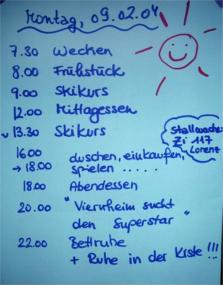 Montag, 09.02.04
7.30 Wecken
8.00 Frühstück
9.00 Skikurs
12.00 Mittagessen
13.30 Skikurs
Stallwache:
Zi 117
Lorenz
16.00
→ 18.00 duschen, einkaufen,
spielen .....
18.00 Abendessen
20.00 "Viernheim sucht
den Superstar"
22.00 Bettruhe
+ Ruhe in der Kiste!!!